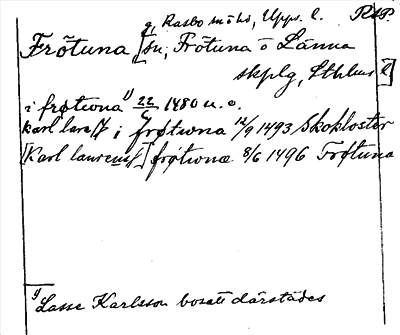 g, Rasbo s:n o hd, Upps. l. RAP.
Frötuna [sn, Frötuna o Länna
skplg, Sthlms l]
i frøtwna 1) 22/ 1480 u. o.
karl lare i frøtwna 12/9 1493 Skokloster
[Karl laurens] frøtwnæ 8/6 1496 Frötuna
1) Lasse Karlsson bosatt därstädes